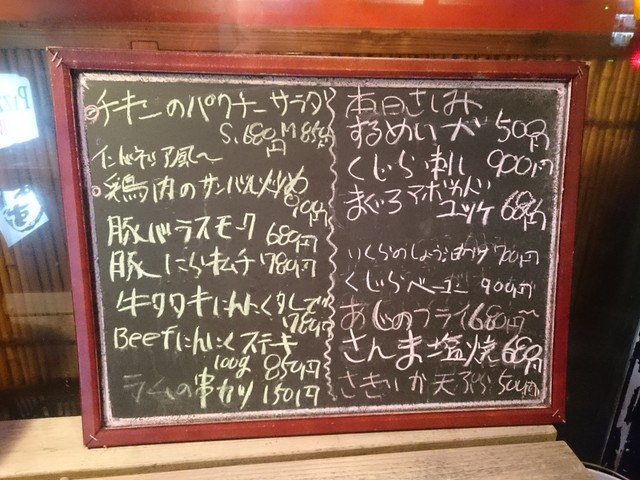 チキンのパクチーサラダ
S.680円 M850円
インドネシア風〜
鶏肉のサンバル炒め
900円
豚バラスモーク 680円
豚にらキムチ 780円
牛タタキにんにくダレで
780円
Beefにんにくステーキ
100g 850円
ラムの串カツ 150円
本日さしみ
するめいか 500円
くじら刺し 900円
まぐろアボカド
ユッケ 680円
いくらのしょう油づけ 700円
くじらベーコン 900円
あじのフライ 680円〜
さんま塩焼 680円
さきいか天ぷら 500円